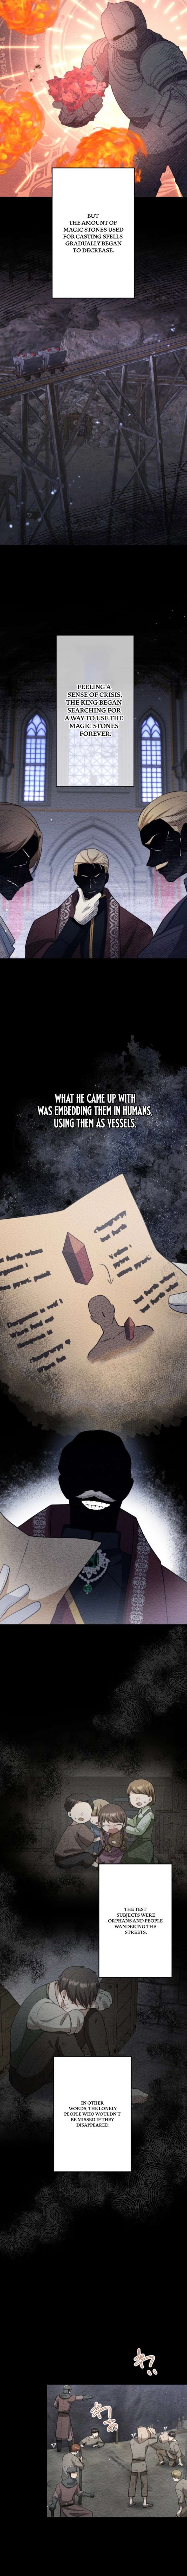 BUT
THE AMOUNT OF
MAGIC STONES USED
FOR CASTING SPELLS
GRADUALLY BEGAN
TO DECREASE.
FEELING A
SENSE OF CRISIS,
THE KING BEGAN
SEARCHING FOR
A WAY TO USE THE
MAGIC STONES
FOREVER.
WHAT HE CAME UP WITH
WAS EMBEDDING THEM IN HUMANS,
USING THEM AS VESSELS.
THE TEST
SUBJECTS WERE
ORPHANS AND PEOPLE
WANDERING THE
STREETS.
IN OTHER
WORDS, THE LONELY
PEOPLE WHO WOULDN'T
BE MISSED IF THEY
DISAPPEARED.
わ…
わわ